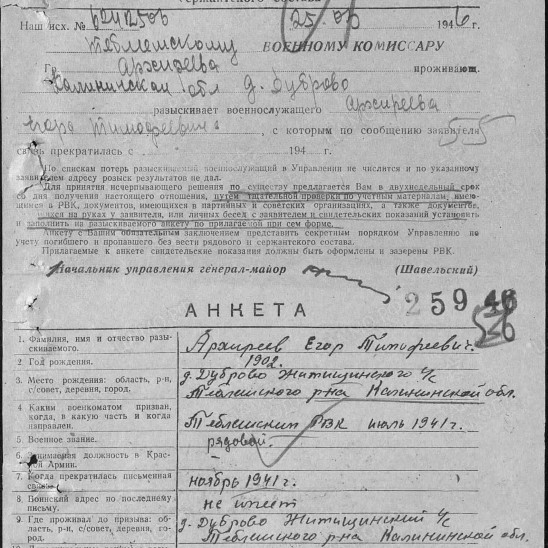 сержантского состава
Наш исх. № 624250б 25.06 1946 г.
Теблемскому ВОЕННОМУ КОМИССАРУ
Гр. Архиреева проживающ.
Калининской обл д. Дуброво
разыскивает военнослужащего Архиреева
Егора Тимофеевича, с которым по сообщению заявителя
связь прекратилась с 194 г. 55
По спискам потерь разыскиваемый военнослужащий в Управлении не числится и по указанному
заявителем адресу розыск результатов не дал.
Для принятия исчерпывающего решения по существу предлагается Вам в двухнедельный срок
со дня получения настоящего отношения, путем тщательной проверки по учетным материалам, имею-
щимся в РВК, документов, имеющихся в партийных и советских организациях, а также документов,
имеющихся на руках у заявителя, или личных бесед с заявителем и свидетельских показаний установить
и заполнить на разыскиваемого анкету по прилагаемой при сем форме.
Анкету с Вашим обстоятельным заключением представить секретным порядком Управлению
по учету погибшего и пропавшего без вести рядового и сержантского состава.
Прилагаемые к анкете свидетельские показания должны быть оформлены и заверены РВК.
Начальник управления генерал-майор (Шавельский)
259 46
АНКЕТА
1. Фамилия, имя и отчество разы-
скиваемого. Архиреев Егор Тимофеевич.
2. Год рождения. 1902.
3. Место рождения: область, р-н, д. Дуброво Житищинского с/с
с/совет, деревня, город. Теблешского р-на Калининской обл.
4. Каким военкоматом призван,
когда, в какую часть и когда Теблешским РВК июль 1941 г.
направлен.
5. Военное звание. рядовой.
6. Занимаемая должность в Крас-
ной Армии.
7. Когда прекратилась письменная
связь. ноябрь 1941 г.
8. Воинский адрес по последнему
письму. не имеет
9. Где проживал до призыва: об- д. Дуброво Житищинский с/с
ласть, р-н, с/совет, деревня, го- Теблешского р-на Калининской обл.
род.